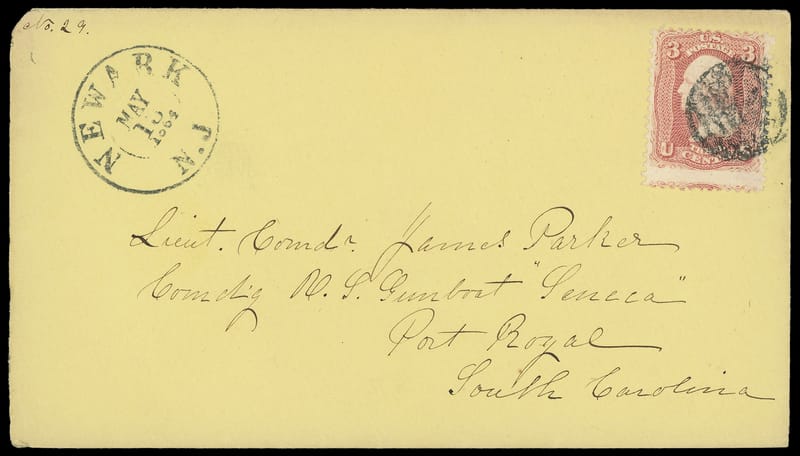 No. 29.
NEWARK N.J.
MAY
10
1864
3 U.S. 3
POSTAGE
U
CENTS
Lieut. Comdr. James Parker
Comd'g U. S. Gunboat "Seneca"
Port Royal
South Carolina